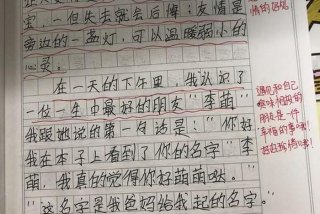 宝，一但失去就会后悔；友情是
旁边的一盏灯，可以温暖弱小的
心灵。
在一天的下午里，我认识了
一位一生中最好的朋友"李萌"
我跟她说的第一句话是："你好
我在本子上看到了你的名字"李
萌，我真的觉得你好萌萌哒。"
"这名字是我爸妈给我起的名字。"
遇见和自己
趣味相投的
朋友是一件
幸福的事哦！